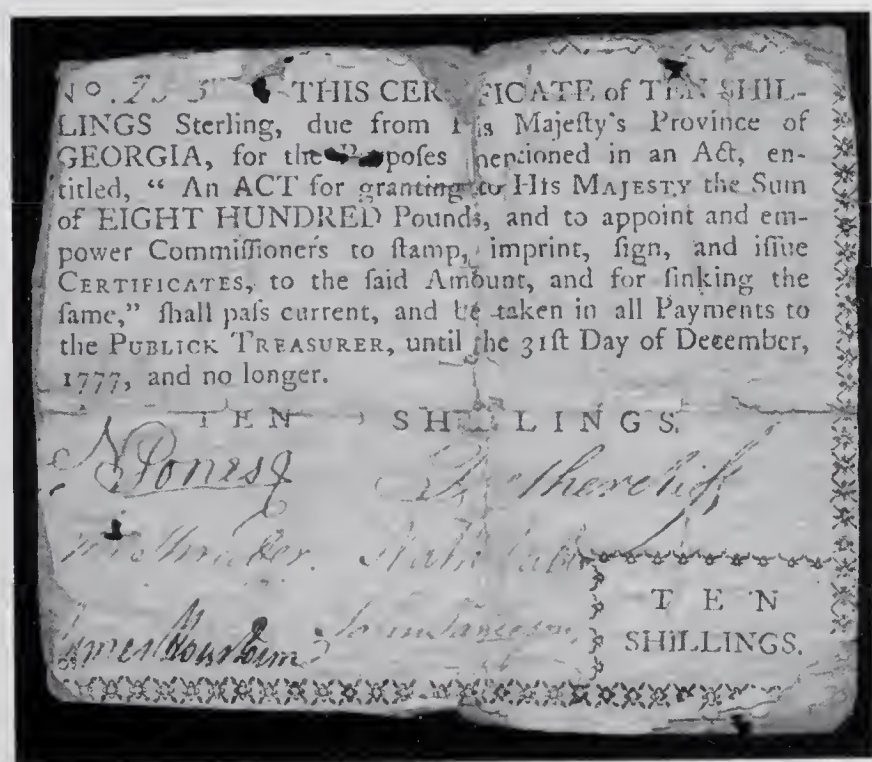 No. THIS CERTIFICATE of TEN SHIL-
LINGS Sterling, due from His Majeſty's Province of
GEORGIA, for the Purpoſes mentioned in an Act, en-
titled, “ An ACT for granting to HIS MAJESTY the Sum
of EIGHT HUNDRED Pounds, and to appoint and em-
power Commiſſioners to ſtamp, imprint, ſign, and iſſue
CERTIFICATES, to the ſaid Amount, and for ſinking the
ſame,” ſhall paſs current, and be taken in all Payments to
the PUBLICK TREASURER, until the 31ſt Day of December,
1777, and no longer.
TEN SHILLINGS.
N Jones
James Houstoun
TEN
SHILLINGS.